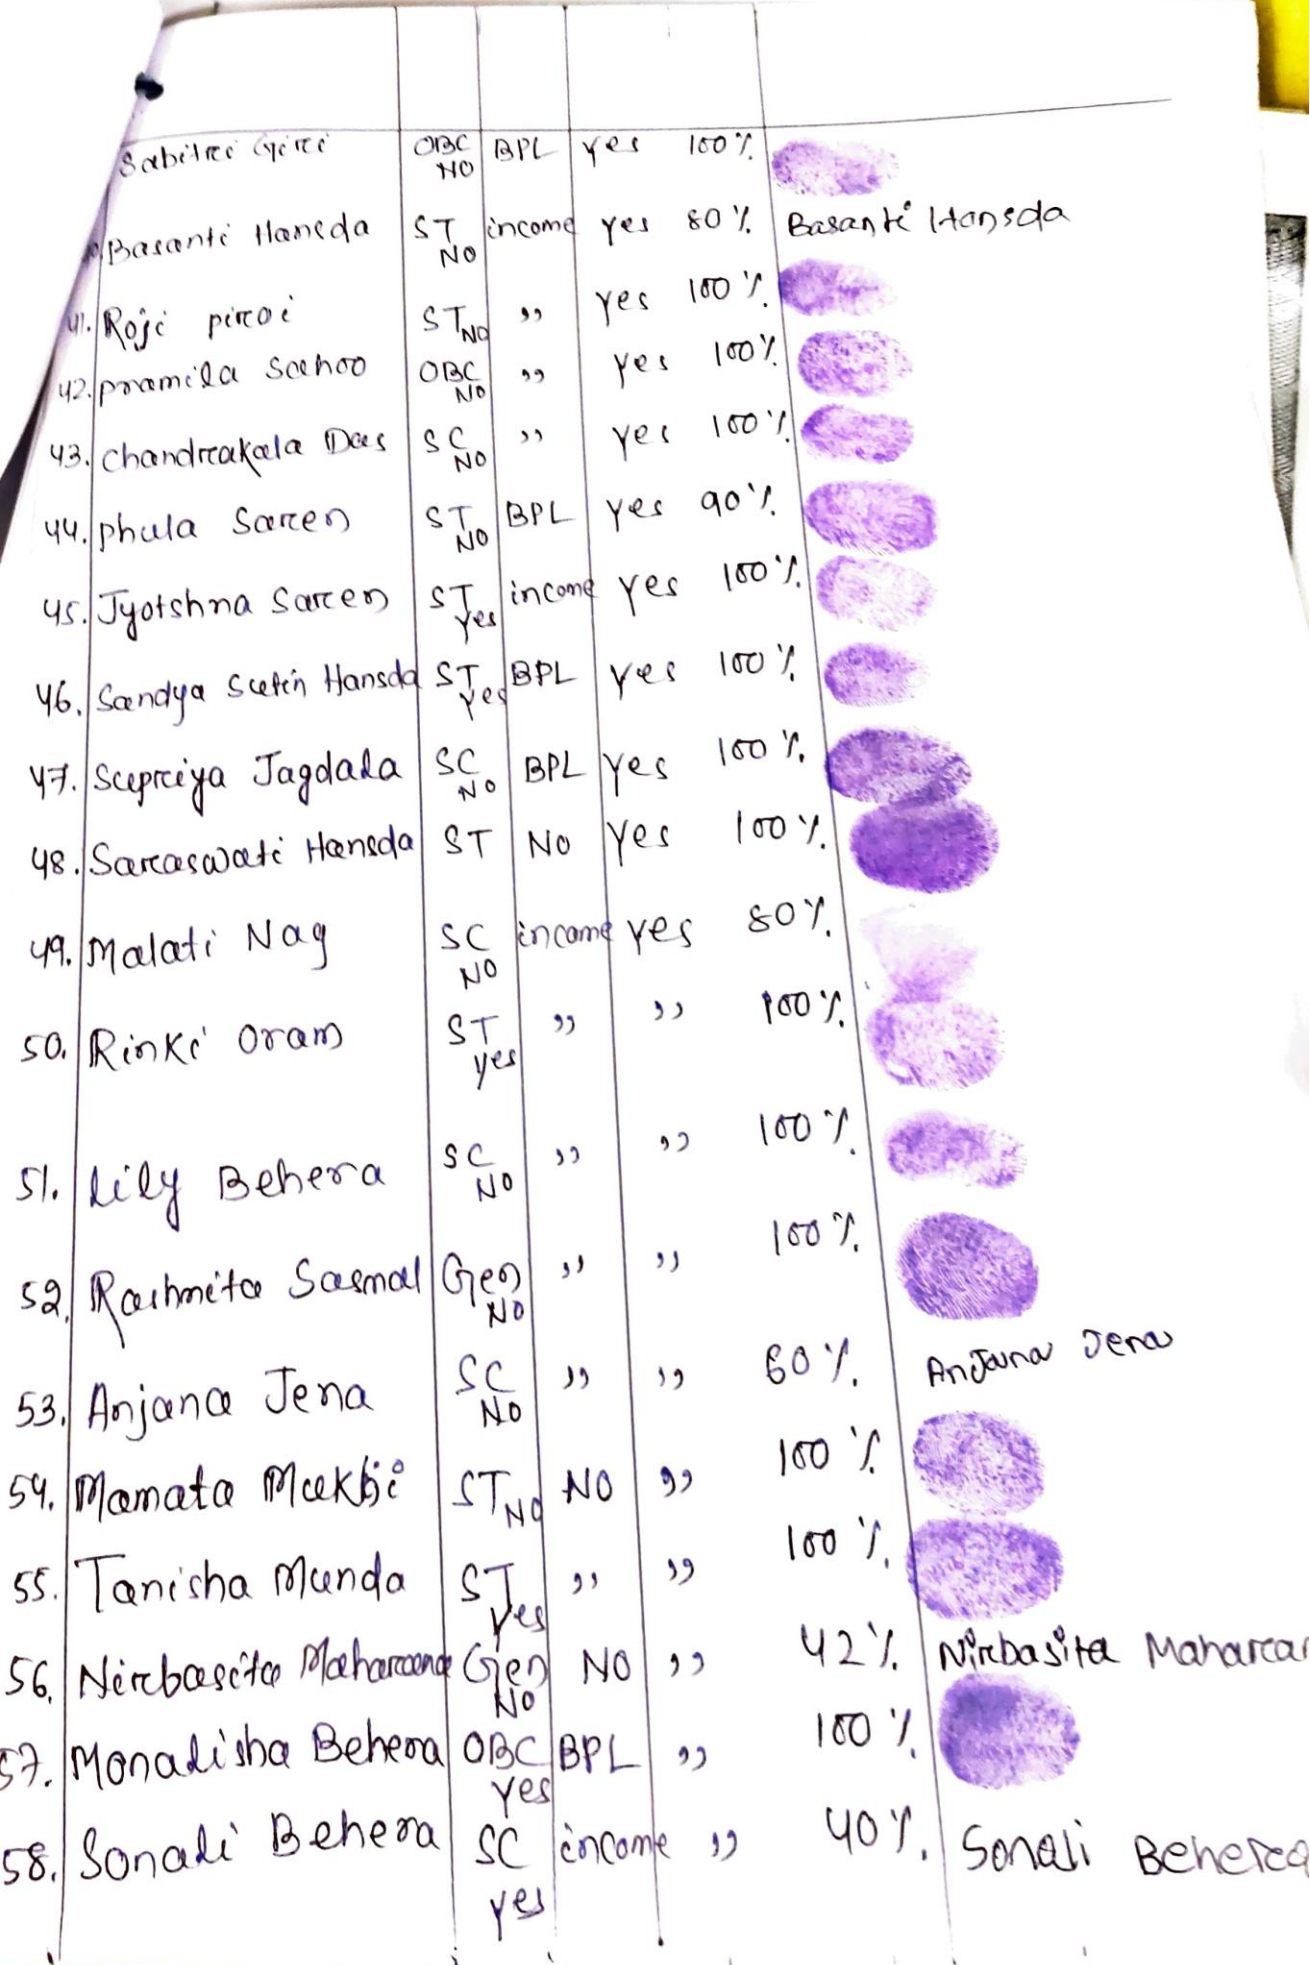 Sabitri Giri OBC NO BPL yes 100%
Basanti Hansda ST NO income yes 80% Basanti Hansda
41. Roji piroi ST NO ,, yes 100%
42. pramila Sahoo OBC NO ,, yes 100%
43. Chandrakala Das SC NO ,, yes 100%
44. phula Saren ST NO BPL yes 90%
45. Jyotshna Saren ST yes income yes 100%
46. Sandya Hansda ST yes BPL yes 100%
47. Supriya Jagdala SC NO BPL yes 100%
48. Saraswati Hansda ST NO yes 100%
49. Malati Nag SC NO income yes 80%
50. Rinki Oram ST yes ,, ,, 100%
51. Lily Behera SC NO ,, ,, 100%
52. Rashmita Sasmal Gen NO ,, ,, 100%
53. Anjana Jena SC NO ,, ,, 60% Anjana Jena
54. Mamata Mukhi ST NO NO ,, 100%
55. Tanisha Munda ST yes ,, ,, 100%
56. Nirbasita Maharana Gen NO NO ,, 42% Nirbasita Maharan
57. Monalisha Behera OBC yes BPL ,, 100%
58. Sonali Behera SC yes income ,, 40% Sonali Behera